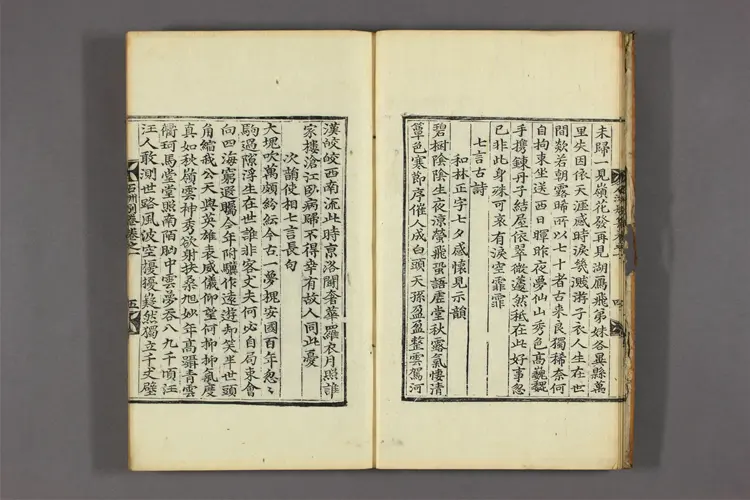 未歸一見嶺花發再見湖鴈飛弟妹各異縣萬
里失因依天涯感時淚幾濺游子衣人生在世
間欻若朝露晞所以七十者古來良獨稀奈何
自拘束坐送西日暉昨夜夢仙山秀色高巍巍
手携鍊丹子結屋依翠微蘧然秪在此好事忽
已非此身殊可哀有淚空霏霏
七言古詩
和林正字七夕感懷見示韻
碧樹陰陰生夜凉螢飛蛩語虛堂秋露氣悽清
簟色寒節序催人成白頭天孫盈盈整雲駕河
漢皎皎西南流此時京洛鬪奢華羅衣月照誰
家樓滄江臥病歸不得幸有故人同此憂
次韻使相七言長句
大塊吹萬頗紛紜今古一夢槐安國百年忽忽
駒過隙浮生在世誰非客丈夫何必自局束會
向四海窮遐矚今年附驥作遠遊却笑半世頭
角縮我公天與英雄表威儀仰望何抑抑氣度
真如秋嶺雲神秀欲射扶桑旭妙年高躡青雲
衢珂馬堂堂照南陌胸中雲夢吞八九千頃汪
汪人敢測世路風波空擾擾嶷然獨立千丈壁
五